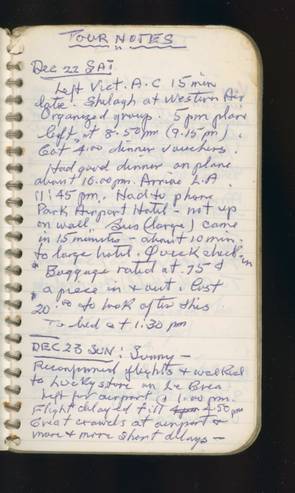 TOUR NOTES
DEC 22 SAT
Left Vict. A.C 15 min
late. Shilagh at Western Air
Organized group. 5 pm plane
left at 8.50pm (9.15pm).
Got 4.00 dinner vouchers.
Had good dinner on plane
about 10.00pm. Arrive L.A.
11:45 pm. Had to phone
Park Airport Hotel - not up
on wall. Bus (large) came
in 15 minutes - about 10 min.
to large hotel. Quick check in
Baggage rated at .75¢
a piece in & out. Cost
20.00 to look after this
To bed at 1:30 pm
DEC 23 SUN: Sunny -
Reconfirmed flights & walked
to Lucky store on La Brea
Left for airport @ 1.00pm.
Flight delayed till 4.50pm
Great crowds at airport &
more & more short delays -